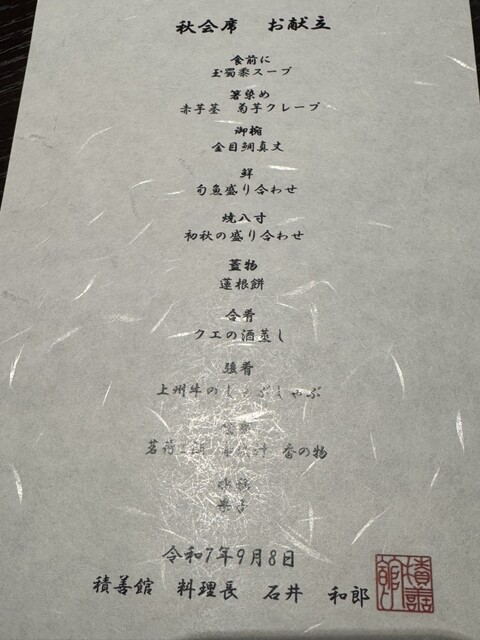 秋会席 お献立
食前に
玉蜀黍スープ
箸染め
赤芋茎 菊芋クレープ
御椀
金目鯛真丈
鮮
旬魚盛り合わせ
焼八寸
初秋の盛り合わせ
蓋物
蓮根餅
合肴
クエの酒蒸し
強肴
上州牛のしゃぶしゃぶ
茗荷 香の物
令和7年9月8日
積善館 料理長 石井 和郎
積善館